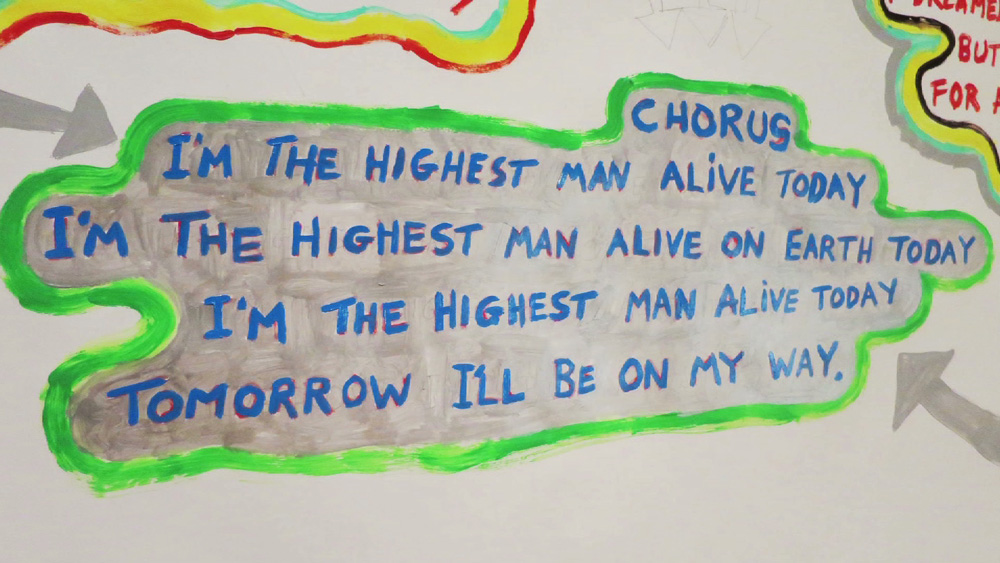 DREAMED
BUT
FOR A
CHORUS
I'M THE HIGHEST MAN ALiVE TODAY
I'M THE HIGHEST MAN ALIVE ON EARTH TODAY
I'M THE HIGHEST MAN ALiVE TODAY
TOMORROW I'LL BE ON MY WAY.